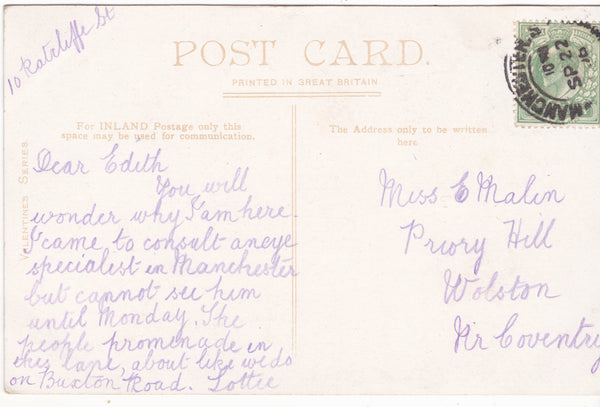 10 Ratcliffe St
POST CARD.
PRINTED IN GREAT BRITAIN
For INLAND Postage only this
space may be used for communication.
The Address only to be written
here
VALENTINES SERIES.
Dear Edith
You will
wonder why I am here.
I came to consult an eye
specialist in Manchester
but cannot see him
until Monday. The
people promenade in
this lane, about like we do
on Buxton Road. Lottie
Miss E Malin
Priory Hill
Wolston
Nr Coventry
MANCHESTER
SP 22
10